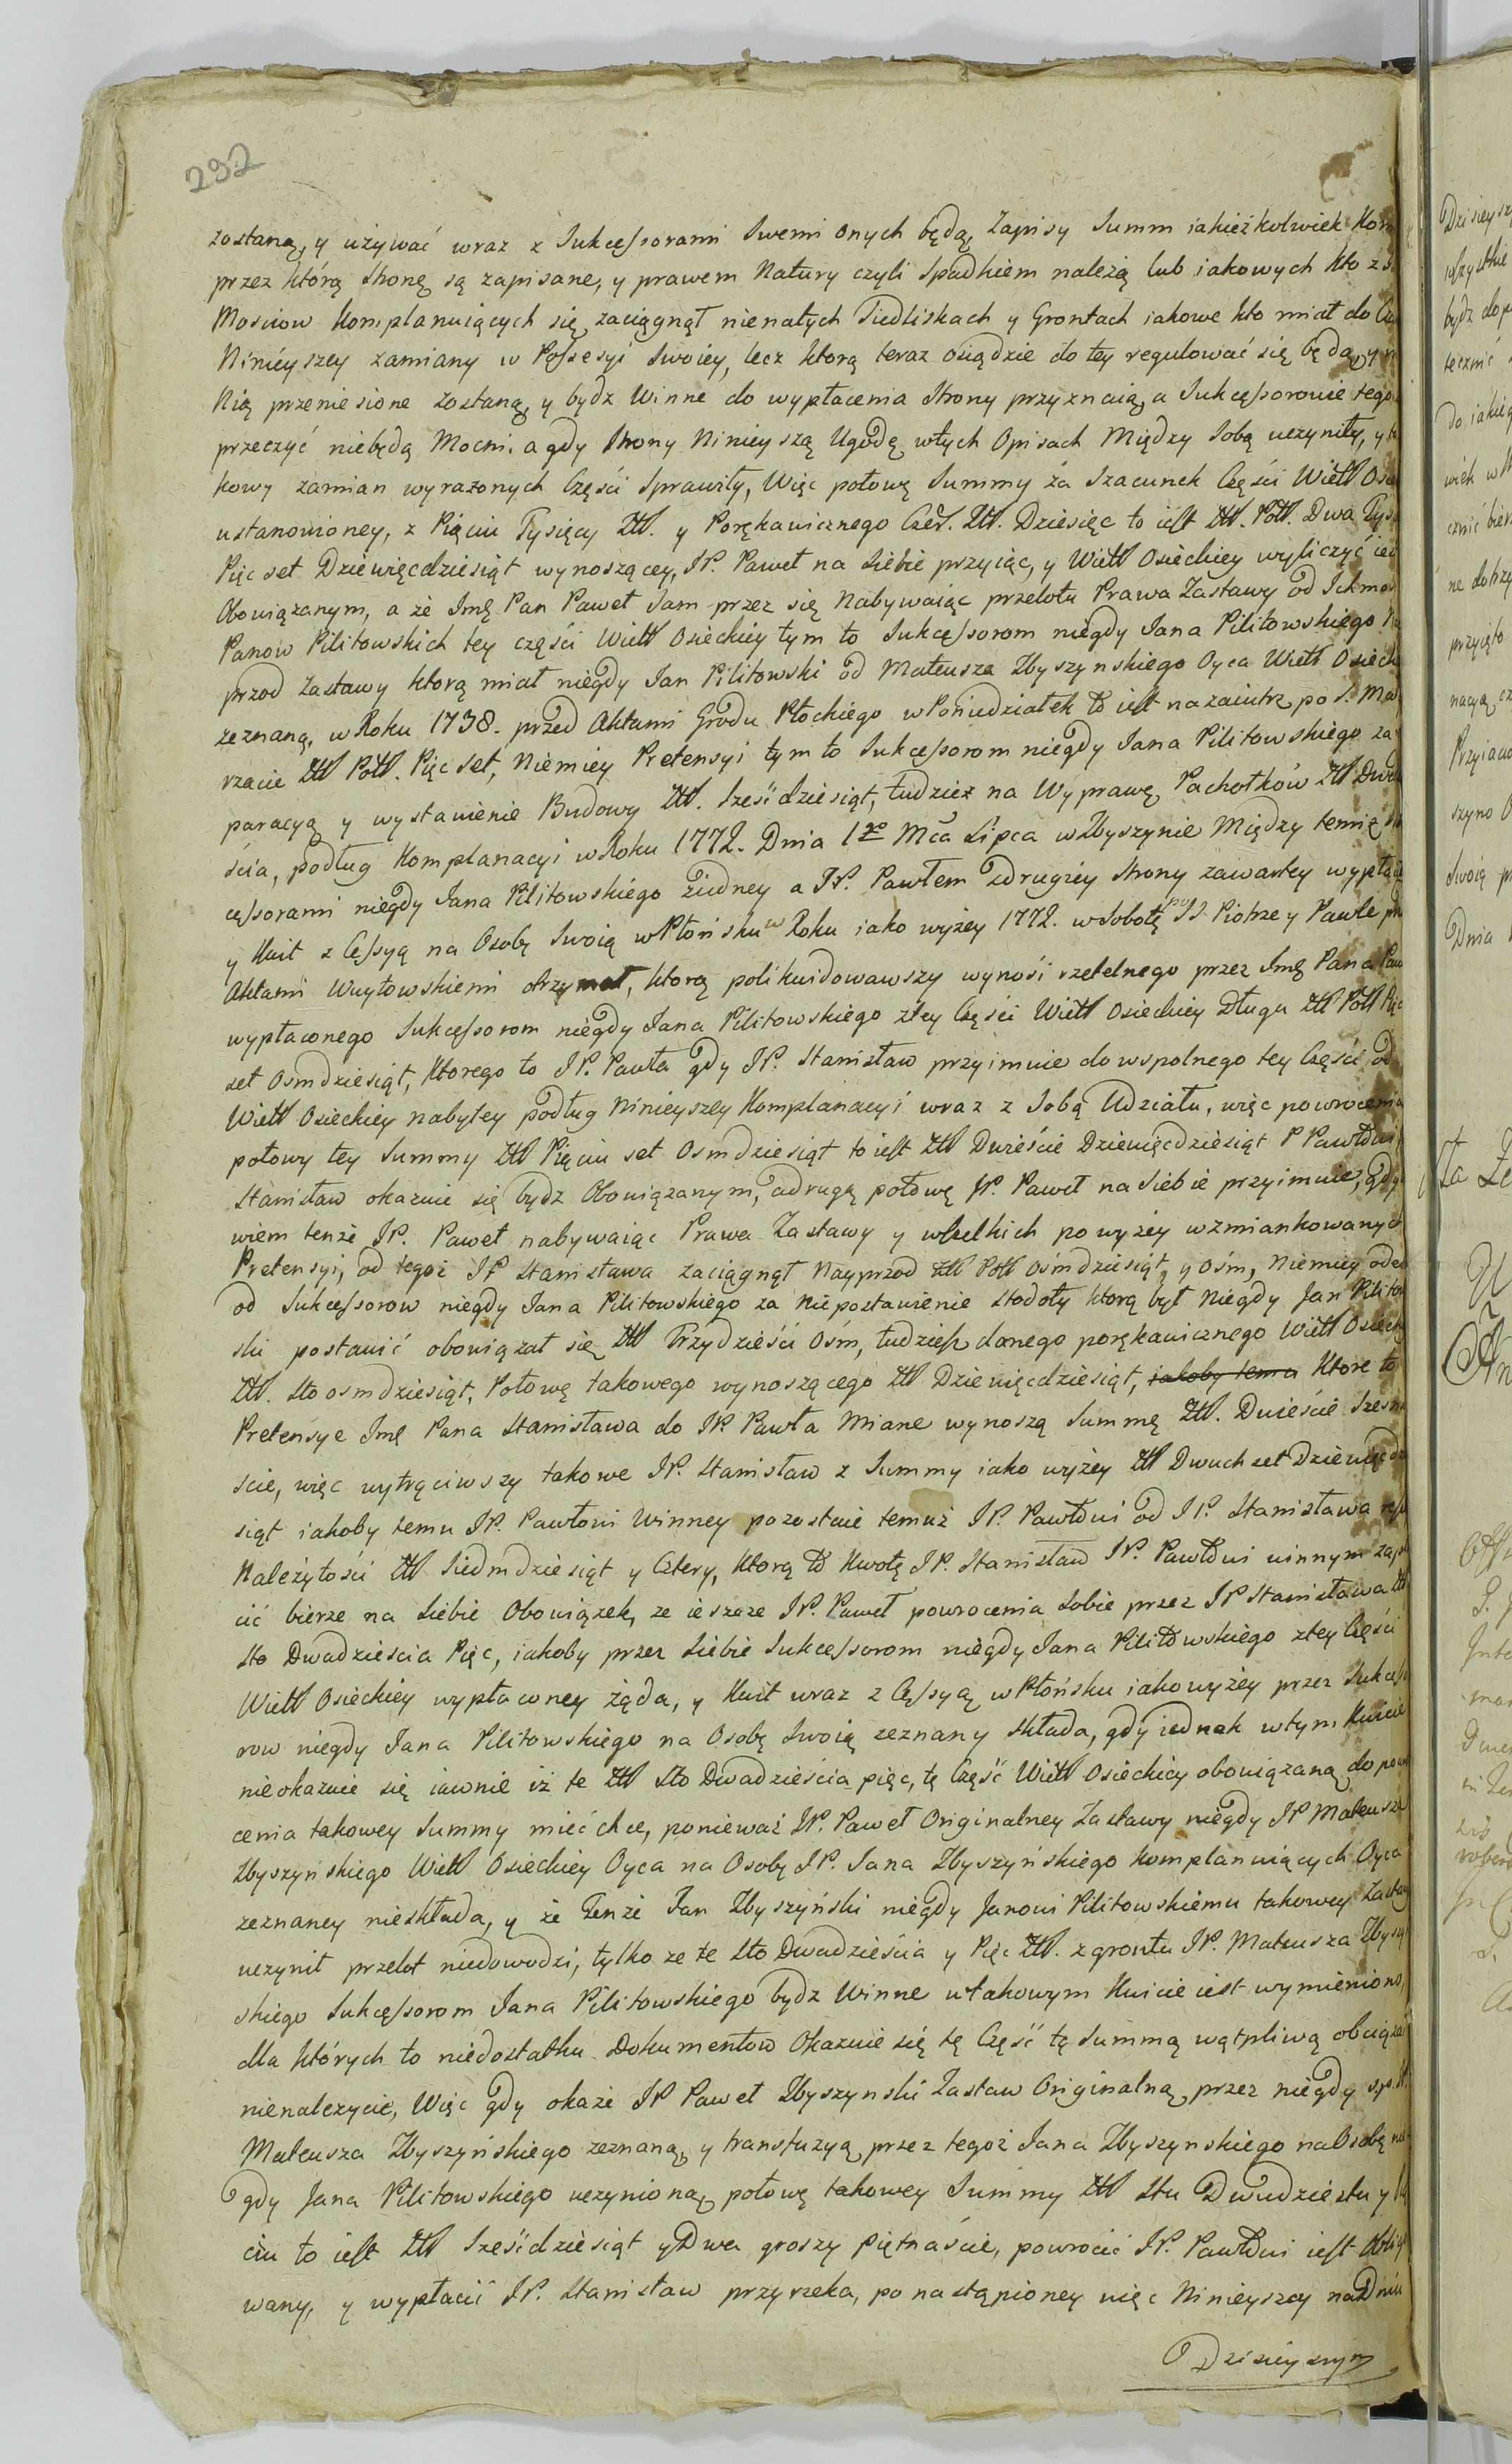 292
zostaną, y używać wraz z Sukcessorami Swemi onych będą, Zapisy Summ iakieżkolwiek
przez którą Stronę są zapisane, y prawem Natury czyli Spadkiem należą lub iakowych kto z
Mosciow Komplanuiących się zaciągnął nienatych Siedliskach y Grontach iakowe kto miał do
Ninieyszey zamiany w Possesyi Swoiey, lecz ktorą teraz osiądzie do tey regulować się będą, y
Nią przeniesione zostaną, y bydz Winne do wypłacenia Strony przyznaią, a Sukcessorowie tego
przeczyć niebędą Mocni. a gdy Strony Ninieyszą Ugodę wtych Opisach Między Sobą uczyniły, y
kowy zamian wyrazonych Części Sprawiły, Więc połowę Summy za Szacunek Części Wiell
ustanowioney, z Pięciu Tysięcy Złł. y Porękawicznego Czer. Złł. Dziesięc to iest Złł. Poll. Dwa
Pięc set Dziewięcdziesiąt wynoszącey, JP. Paweł na Siebie przyiąc, y Wiell Osieckiey wyliczyć iest
Obowiązanym, a że Jmę Pan Paweł Sam przez się Nabywaiąc przelotu Prawa Zastawy od Ichmos
Panow Pilitowskich tey części Wiell Osieckiey tym to Sukcessorom niegdy Jana Pilitowskiego
przod Zastawy ktorą miał niegdy Jan Pilitowski od Mateusza Zbyszynskiego Oyca Wiell
zeznaną, w Roku 1738. przed Aktami Grodu Płockiego w Poniedziałek to iest nazaiutrz po S.
rzacie Złł Poll. Pięc Set, Niemiey Pretensyi tym to Sukcessorom niegdy Jana Pilitowskiego za
paracyą y wystawienie Budowy Złł. Sześćdziesiąt, tudzież na Wyprawę Pachołków Złł
ścia, podług Komplanacyi w Roku 1772. Dnia 1go Mca Lipca w Zbyszynie Między temiż
cessorami niegdy Jana Pilitowskiego ziedney a JP. Pawłem zdrugiey Strony zawartey
y Kwit z Cessyą na Osobę Swoią w Płońsku w Roku iako wyżey 1772. w Sobotę po SS. Piotrze y Pawle
Aktami Wuytowskiemi otrzymał, ktorą polikwidowawszy wynosi rzetelnego przez Jmę Pana
wypłaconego Sukcessorom niegdy Jana Pilitowskiego ztey Części Wiell Osieckiey Długu Złł Poll
set Osmdziesiąt, Ktorego to JP. Pawła gdy JP. Stanisław przyimuie do wspolnego tey Części od
Wiell Osieckiey nabytey podług Ninieyszey Komplanacyi wraz z Sobą Udziału, więc powrocenia
połowy tey Summy Złł Pięciu set Osmdziesiąt to iest Złł Dwieście Dziewięcdziesiąt P Pawłowi
Stanisław okazuie się bydz Obowiązanym, adrugą połowę JP. Paweł na Siebie przyimuie,
wiem tenże JP. Paweł nabywaiąc Prawa Zastawy y wszelkich powyżey wzmiankowanych
Pretensyi, od tegoż JP Stanisława zaciągnął Nayprzod Złł Poll ośmdziesiąt y ośm, Niemiey
od Sukcessorow niegdy Jana Pilitowskiego za Niepostawienie Stodoły ktorą był Niegdy Jan
ski postawić obowiązał się Złł Trzydzieści Ośm, tudzież danego porękawicznego Wiell
Złł. Sto osmdziesiąt, Połowę takowego wynoszącego Złł Dziewięcdziesiąt, iakoby temu Ktore to
Pretensye Jmę Pana Stanisława do JP. Pawła Miane wynoszą Summę Złł. Dwieście
ście, więc wytrąciwszy takowe JP. Stanisław z Summy iako wyżey Złł Dwuchset
siąt iakoby temu JP. Pawłowi Winney pozostaie temuż JP. Pawłowi od JP. Stanisława
Należytości Złł Siedmdziesiąt y Cztery, Ktorą to Kwotę JP. Stanisław JP. Pawłowi winnym
cić bierze na Siebie Obowiązek, ze ieszcze JP. Paweł powrocenia Sobie przez JP Stanisława Złł
Sto Dwadzieścia Pięc, iakoby przez Siebie Sukcessorom niegdy Jana Pilitowskiego ztey Części
Wiell Osieckiey wypłaconey żąda, y Kwit wraz z Cessyą w Płońsku iakowyżey przez
row niegdy Jana Pilitowskiego na Osobę Swoią zeznany Składa, gdy iednak wtym Kwicie
nieokazuie się iawnie iż te Złł Sto Dwadzieścia pięc, tę Część Wiell Osieckiey obowiązaną do
cenia takowey Summy mieć chce, ponieważ JP. Paweł Originalney Zastawy niegdy JP Mateusza
Zbyszyńskiego Wiell Osieckiey Oyca na Osobę JP. Jana Zbyszyńskiego komplanuiących Oyca
zeznaney nieskłada, y że Tenże Jan Zbyszyński niegdy Janowi Pilitowskiemu takowey
uczynił przelot niedowodzi, tylko ze te Sto Dwadzieścia y Pięc Złł. z grontu JP. Mateusza
skiego Sukcessorom Jana Pilitowskiego bydz Winne wtakowym Kwicie iest wymieniono,
dla których to niedostatku Dokumentow Okazuie się tę Część tą Summą wątpliwą
nienalezycie, Więc gdy okaże JP Paweł Zbyszynski Zastaw Originalną przez niegdy
Mateusza Zbyszyńskiego zeznaną, y transfuzyą przez tegoż Jana Zbyszynskiego naOsobę
gdy Jana Pilitowskiego uczynioną połowę takowey Summy Złł Stu Dwudziestu y
ciu to iest Złł Sześćdziesiąt y Dwa groszy Piętnaście, powrocić JP. Pawłowi iest
wany, y wypłacić JP. Stanisław przyrzeka, po nastąpioney więc Ninieyszey na Dniu
Dzisieyszym